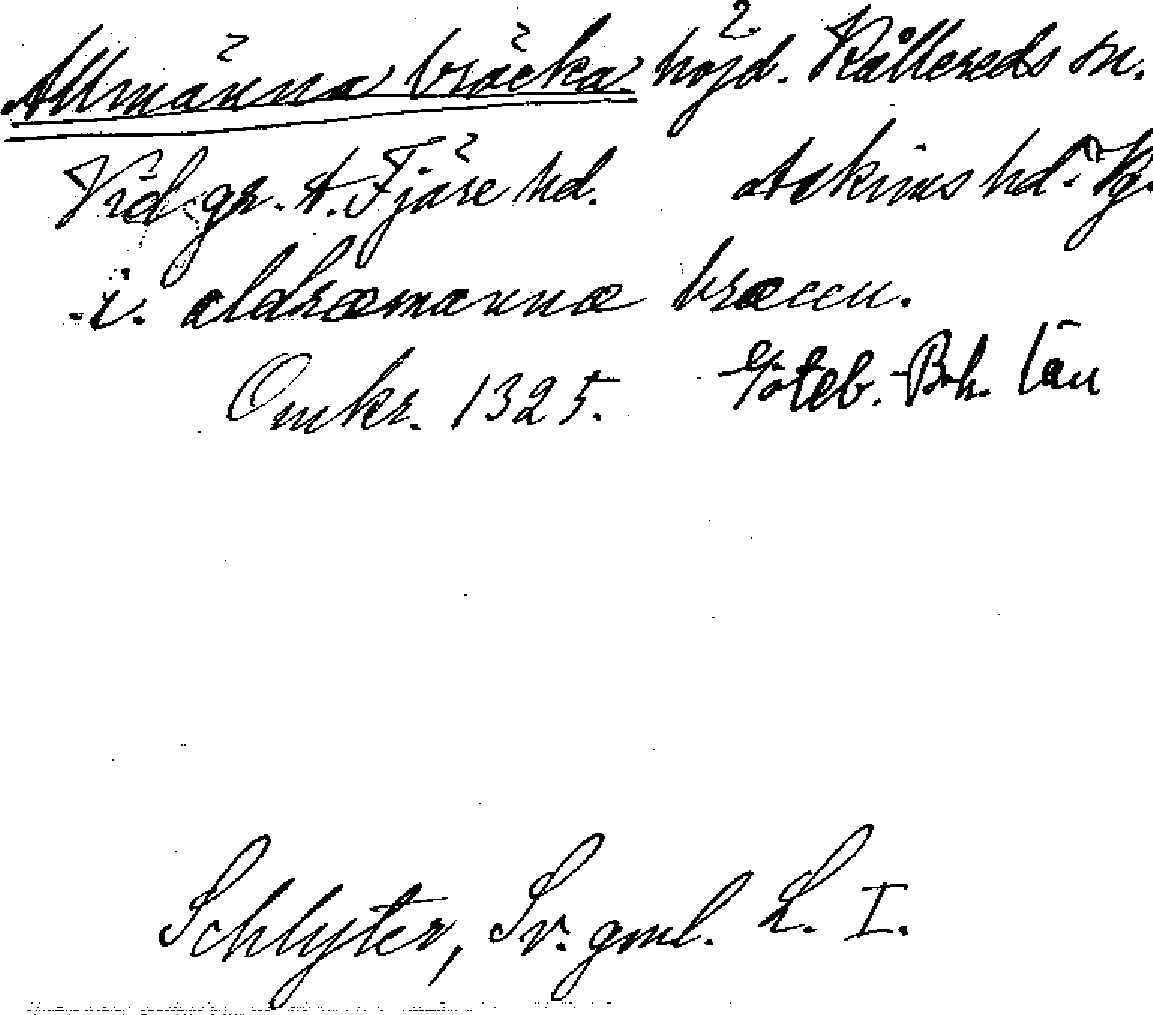 Allmänna bräcka höjd. Kållereds sn.
Vid gr. t. Fjäre hd. Askims hd. Vg.
i. aldræmannæ bræccu.
Omkr. 1325. Göteb.-Boh. län
Schlyter, Sv. gml. L. I.